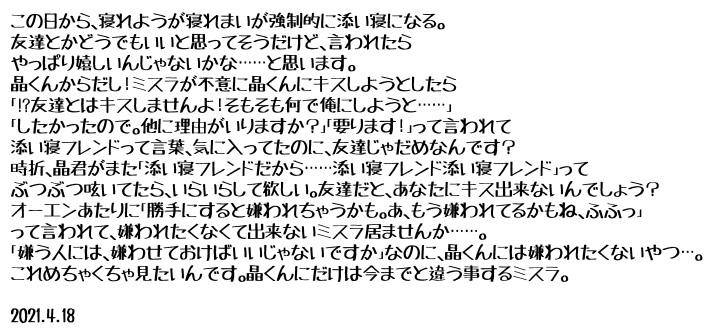 この日から、寝れようが寝れまいが強制的に添い寝になる。
友達とかどうでもいいと思ってそうだけど、言われたら
やっぱり嬉しいんじゃないかな……と思います。
晶くんからだし！ミスラが不意に晶くんにキスしようとしたら
「!?友達とはキスしませんよ！そもそも何で俺にしようと……」
「したかったので。他に理由がいりますか？」「要ります！」って言われて
添い寝フレンドって言葉、気に入ってたのに、友達じゃだめなんです？
時折、晶君がまた「添い寝フレンドだから……添い寝フレンド添い寝フレンド」って
ぶつぶつ呟いてたら、いらいらして欲しい。友達だと、あなたにキス出来ないんでしょう？
オーエンあたりに「勝手にすると嫌われちゃうかも。あ、もう嫌われてるかもね、ふふっ」
って言われて、嫌われたくなくて出来ないミスラ居ませんか……。
「嫌う人には、嫌わせておけばいいじゃないですか」なのに、晶くんには嫌われたくないやつ…。
これめちゃくちゃ見たいんです。晶くんにだけは今までと違う事するミスラ。
2021.4.18